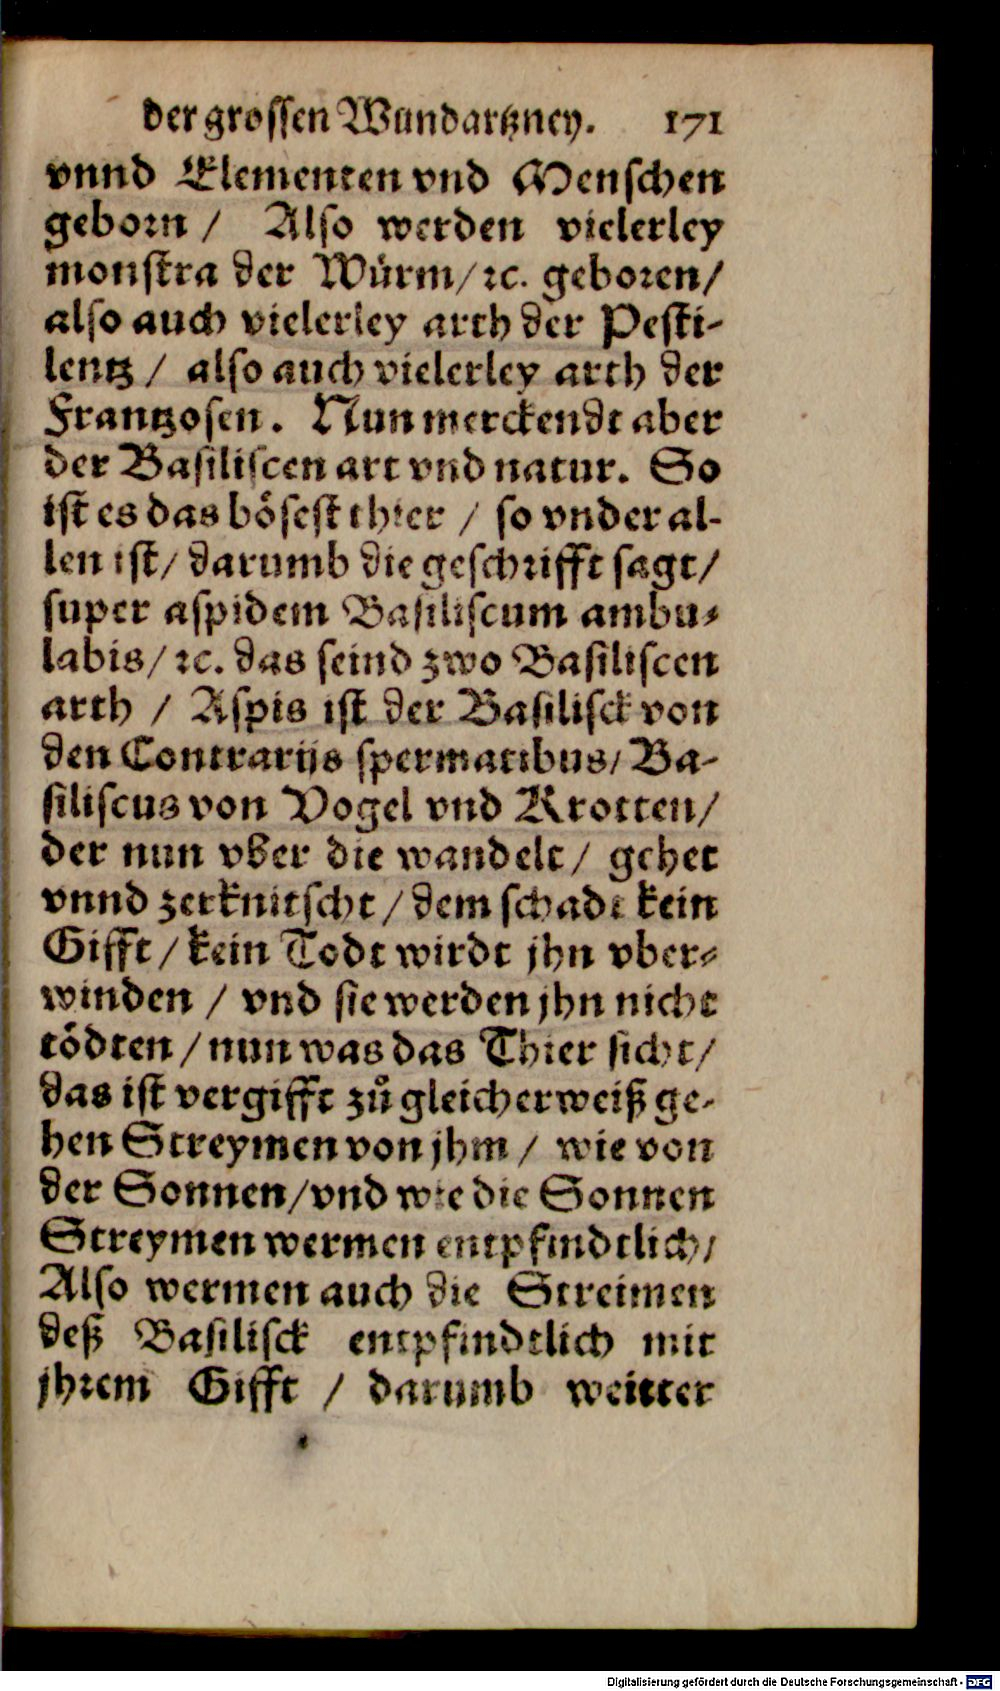 der grossen Wundartzney. 171
vnnd Elementen vnd Menschen
geborn / Also werden vielerley
monstra der Würm/ ꝛc. geboren/
also auch vielerley arth der Pesti-
lentz / also auch vielerley arth der
Frantzosen. Nun merckendt aber
der Basiliscen art vnd natur. So
ist es das bösest thier / so vnder al-
len ist/ darumb die geschrifft sagt/
super aspidem Basiliscum ambu-
labis/ ꝛc. das seind zwo Basiliscen
arth / Aspis ist der Basilisck von
den Contrarijs spermatibus/ Ba-
siliscus von Vogel vnd Krotten/
der nun vber die wandelt/ gehet
vnnd zerknitscht / dem schadt kein
Gifft / kein Todt wirdt jhn vber-
winden / vnd sie werden jhn nicht
tödten / nun was das Thier sicht/
das ist vergifft zů gleicherweiß ge-
hen Streymen von jhm / wie von
der Sonnen/vnd wie die Sonnen
Streymen wermen entpfindtlich/
Also wermen auch die Streimen
deß Basilisck entpfindtlich mit
jhrem Gifft / darumb weitter
Digitalisierung gefördert durch die Deutsche Forschungsgemeinschaft - DFG